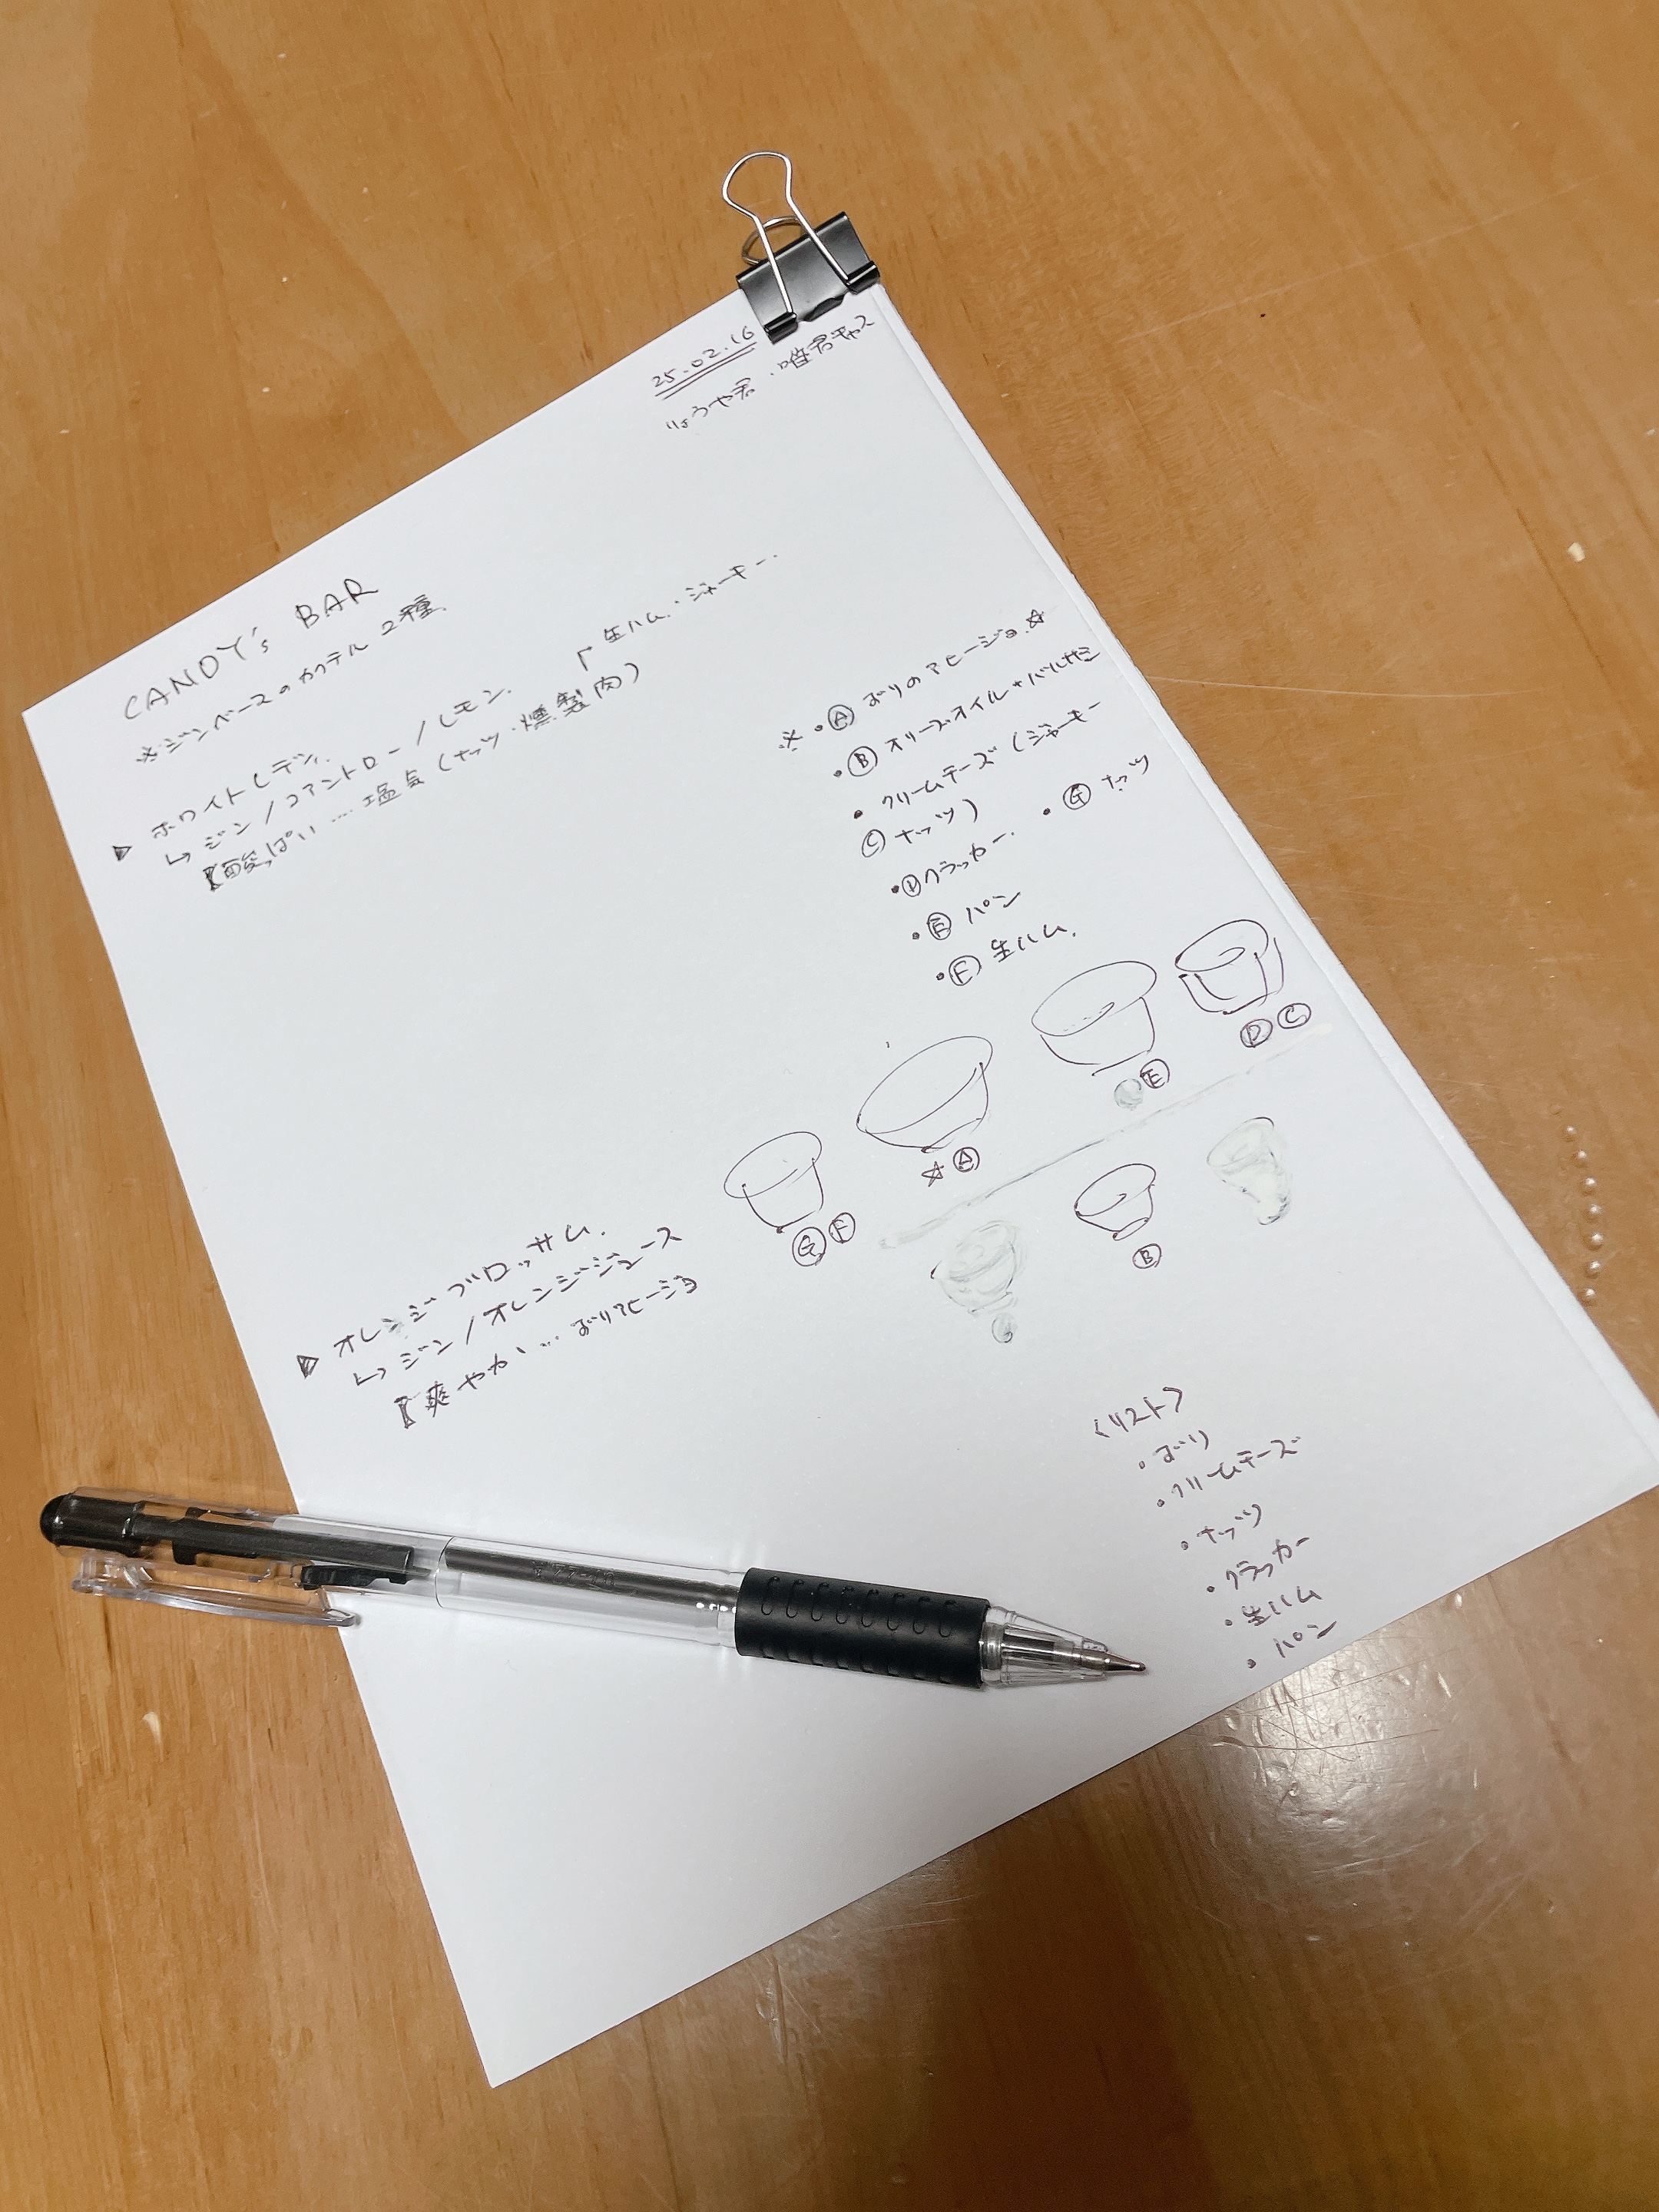 25.02.16
りょうや君・唯君キャス
CANDY's BAR
※ジンベースのカクテル2種.
▷ ホワイトレディ.
↳ ジン/コアントロー/レモン.
【酸っぱい…塩気(ナッツ・燻製肉)
「生ハム・ジャーキー.
※・Ⓐ ぶりのアヒージョ.☆
・Ⓑ オリーブオイル+バルサミ
・クリームチーズ(ジャーキー
Ⓒ ナッツ)
・Ⓖ ナッツ
・Ⓓ クラッカー.
・Ⓔ パン
・Ⓕ 生ハム.
ⒹⒸ
Ⓔ
☆Ⓐ
ⒼⒻ
Ⓑ
▷ オレンジブロッサム.
↳ ジン/オレンジジュース
【爽やか…ぶりアヒージョ
〈リスト〉
・ぶり
・クリームチーズ
・ナッツ
・クラッカー
・生ハム
・パン